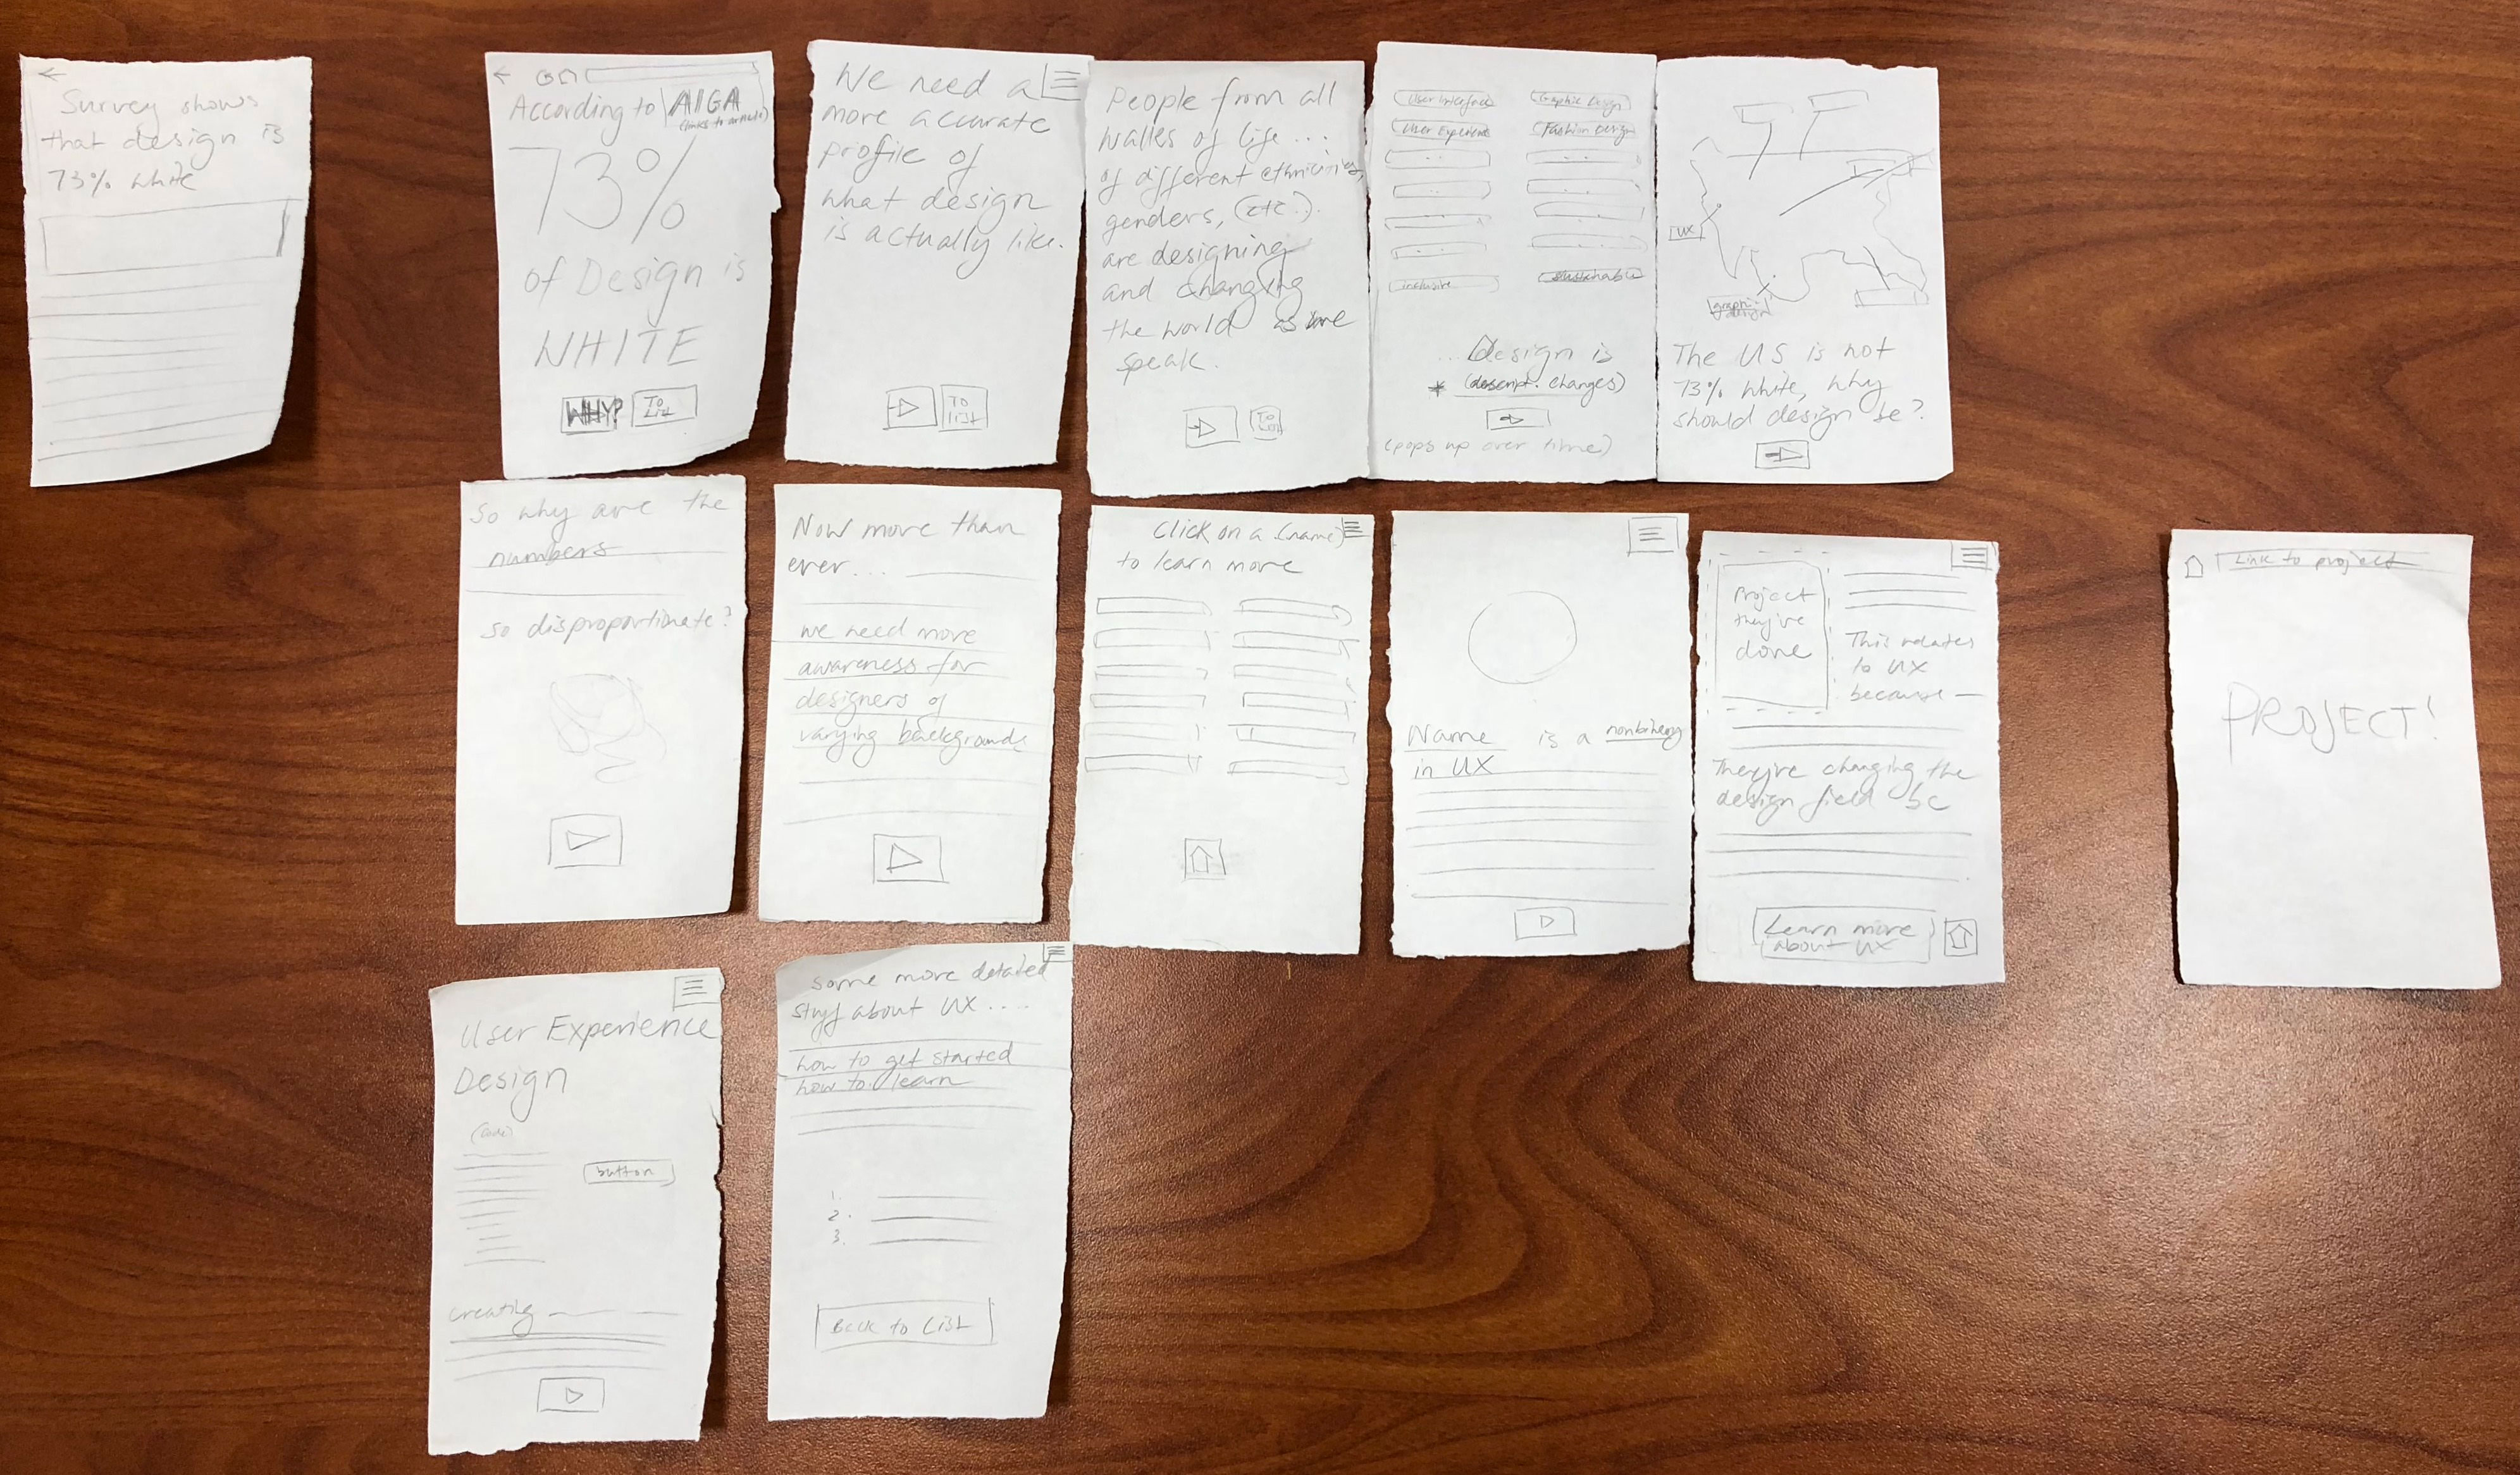 Survey shows
that design is
73% white
According to AIGA
(links to article)
73%
of Design is
WHITE
WHY?
To
List
We need a
more accurate
profile of
what design
is actually like.
To
list
People from all
walks of life ...
of different ethnicities,
genders, (etc.).
are designing
and changing
the world as we
speak.
To
List
User Interface
Graphic Design
User Experience
Fashion Design
inclusive
sustainable
... Design is
* (descript. changes)
(pops up over time)
UX
graphic
design
The US is not
73% white, why
should design be?
So why are the
numbers
so disproportionate?
Now more than
ever...
we need more
awareness for
designers of
varying backgrounds
Click on a (name)
to learn more
Name is a nonbinary
in UX
Project
they've
done
This relates
to UX
because —
They're changing the
design field bc
Learn more
about UX
Link to project
PROJECT!
User Experience
Design
(code)
button
creating
some more detailed
stuff about UX ....
how to get started
how to learn
1.
2.
3.
Back to List